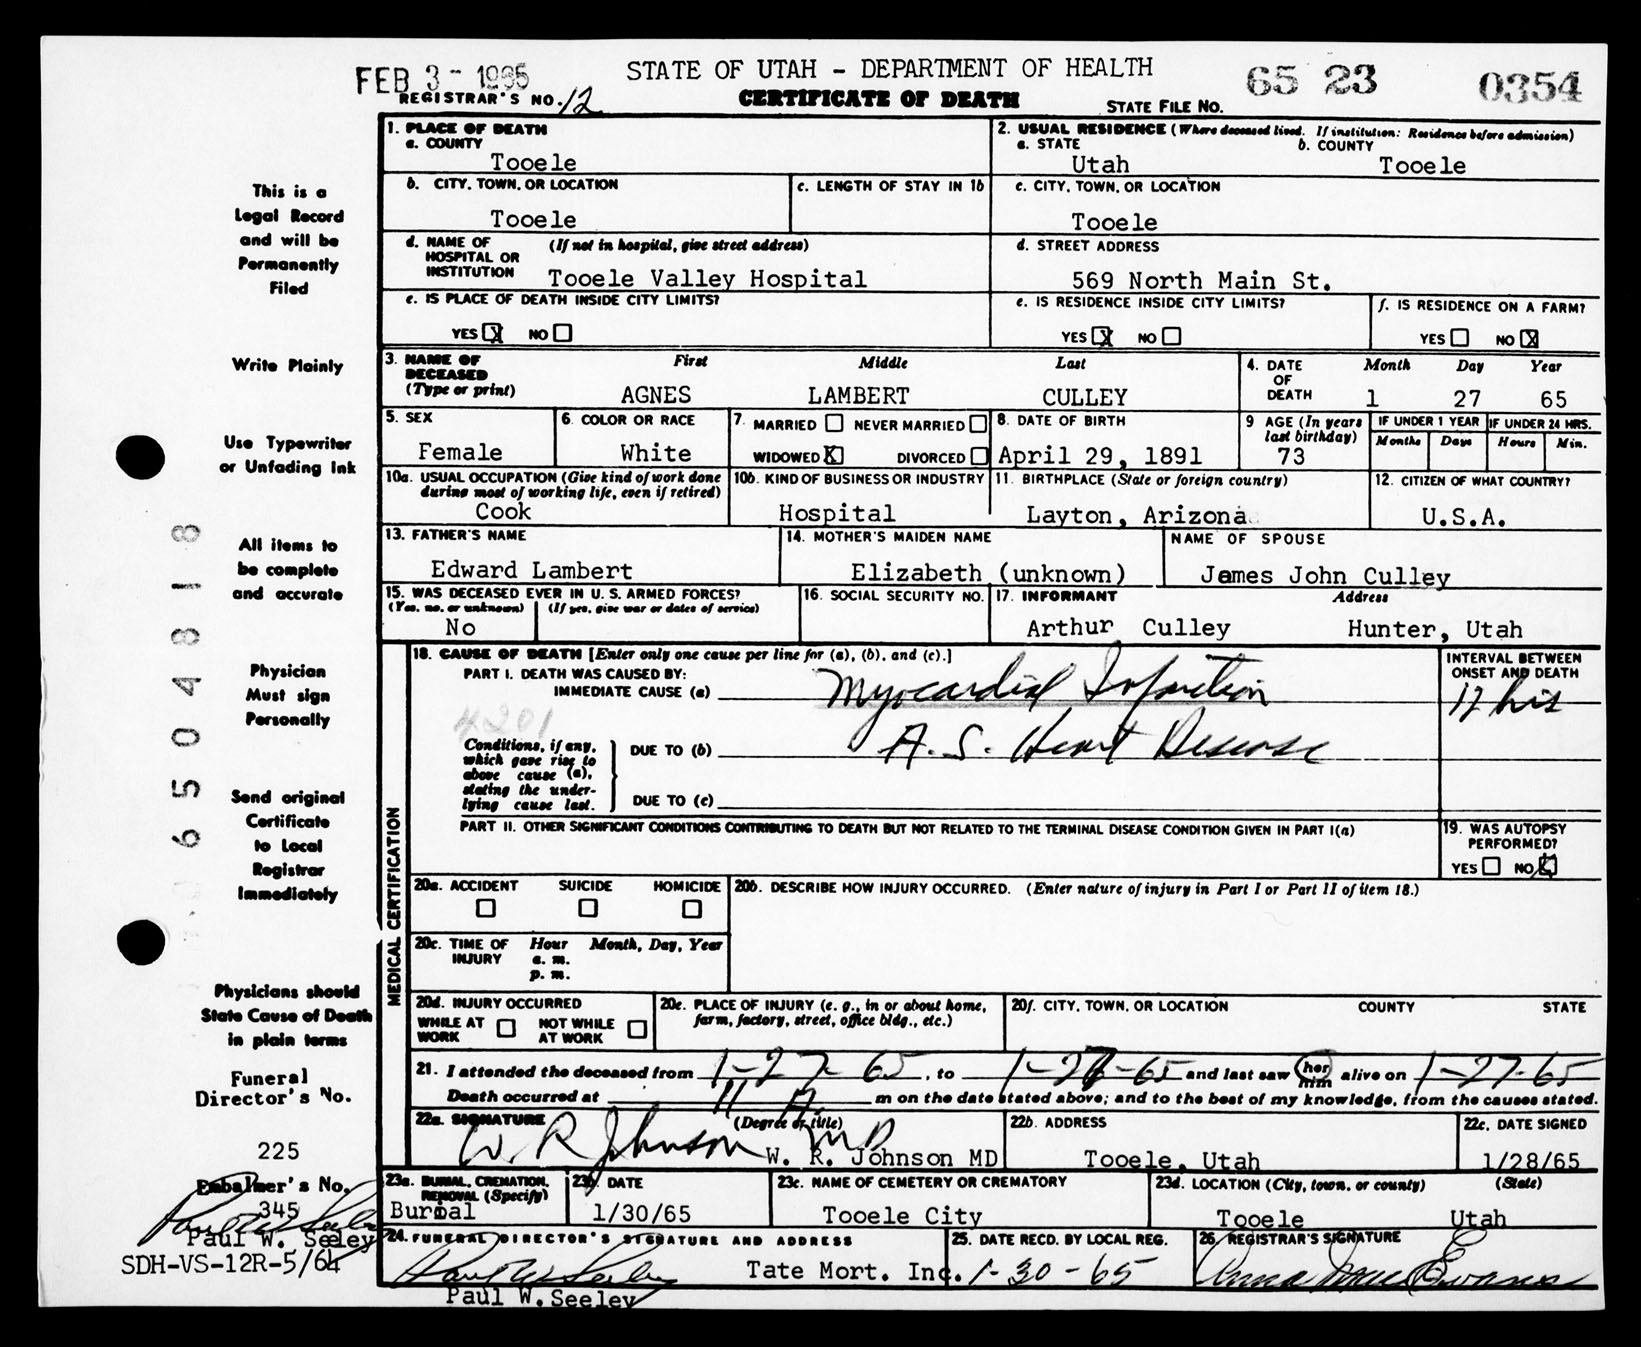 FEB 3 - 1965
STATE OF UTAH - DEPARTMENT OF HEALTH
65 23 0354
REGISTRAR'S NO. 12
CERTIFICATE OF DEATH
STATE FILE NO.
This is a
Legal Record
and will be
Permanently
Filed
Write Plainly
Use Typewriter
or Unfading Ink
All items to
be complete
and accurate
Physician
Must sign
Personally
Send original
Certificate
to Local
Registrar
Immediately
Physicians should
State Cause of Death
in plain terms
Funeral
Director's No.
225
Embalmer's No.
345
Paul W. Seeley
Paul W. Seeley
SDH-VS-12R-5/64
65048 18
1. PLACE OF DEATH
a. COUNTY
Tooele
2. USUAL RESIDENCE (Where deceased lived. If institution: Residence before admission)
a. STATE b. COUNTY
Utah Tooele
b. CITY, TOWN, OR LOCATION
Tooele
c. LENGTH OF STAY IN 1b
c. CITY, TOWN, OR LOCATION
Tooele
d. NAME OF HOSPITAL OR INSTITUTION (If not in hospital, give street address)
Tooele Valley Hospital
d. STREET ADDRESS
569 North Main St.
e. IS PLACE OF DEATH INSIDE CITY LIMITS?
YES X NO
e. IS RESIDENCE INSIDE CITY LIMITS?
YES X NO
f. IS RESIDENCE ON A FARM?
YES NO X
3. NAME OF DECEASED (Type or print)
First Middle Last
AGNES LAMBERT CULLEY
4. DATE OF DEATH
Month Day Year
1 27 65
5. SEX
Female
6. COLOR OR RACE
White
7. MARRIED NEVER MARRIED
WIDOWED X DIVORCED
8. DATE OF BIRTH
April 29, 1891
9 AGE (In years last birthday)
73
IF UNDER 1 YEAR IF UNDER 24 HRS.
Months Days Hours Min.
10a. USUAL OCCUPATION (Give kind of work done during most of working life, even if retired)
Cook
10b. KIND OF BUSINESS OR INDUSTRY
Hospital
11. BIRTHPLACE (State or foreign country)
Layton, Arizona
12. CITIZEN OF WHAT COUNTRY?
U.S.A.
13. FATHER'S NAME
Edward Lambert
14. MOTHER'S MAIDEN NAME
Elizabeth (unknown)
NAME OF SPOUSE
James John Culley
15. WAS DECEASED EVER IN U. S. ARMED FORCES?
(Yes, no, or unknown) (If yes, give war or dates of service)
No
16. SOCIAL SECURITY NO.
17. INFORMANT Address
Arthur Culley Hunter, Utah
MEDICAL CERTIFICATION
18. CAUSE OF DEATH [Enter only one cause per line for (a), (b), and (c).]
INTERVAL BETWEEN ONSET AND DEATH
PART I. DEATH WAS CAUSED BY:
IMMEDIATE CAUSE (a) Myocardial Infarction 12 hrs
4201
Conditions, if any, which gave rise to above cause (a), stating the underlying cause last.
DUE TO (b) A. S. Heart Disease
DUE TO (c)
PART II. OTHER SIGNIFICANT CONDITIONS CONTRIBUTING TO DEATH BUT NOT RELATED TO THE TERMINAL DISEASE CONDITION GIVEN IN PART I(a)
19. WAS AUTOPSY PERFORMED?
YES NO X
20a. ACCIDENT SUICIDE HOMICIDE
20b. DESCRIBE HOW INJURY OCCURRED. (Enter nature of injury in Part I or Part II of item 18.)
20c. TIME OF INJURY Hour Month, Day, Year
a. m.
p. m.
20d. INJURY OCCURRED
WHILE AT WORK NOT WHILE AT WORK
20e. PLACE OF INJURY (e. g., in or about home, farm, factory, street, office bldg., etc.)
20f. CITY, TOWN, OR LOCATION COUNTY STATE
21. I attended the deceased from 1-27-65, to 1-27-65 and last saw her him alive on 1-27-65
Death occurred at 11 A. m on the date stated above; and to the best of my knowledge, from the causes stated.
22a. SIGNATURE (Degree or title)
W. R. Johnson MD
W. R. Johnson MD
22b. ADDRESS
Tooele, Utah
22c. DATE SIGNED
1/28/65
23a. BURIAL, CREMATION, REMOVAL (Specify)
Burial
23b. DATE
1/30/65
23c. NAME OF CEMETERY OR CREMATORY
Tooele City
23d. LOCATION (City, town, or county) (State)
Tooele Utah
24. FUNERAL DIRECTOR'S SIGNATURE AND ADDRESS
Paul W. Seeley Tate Mort. Inc.
Paul W. Seeley
25. DATE RECD. BY LOCAL REG.
1-30-65
26. REGISTRAR'S SIGNATURE
Anna Mae Evans